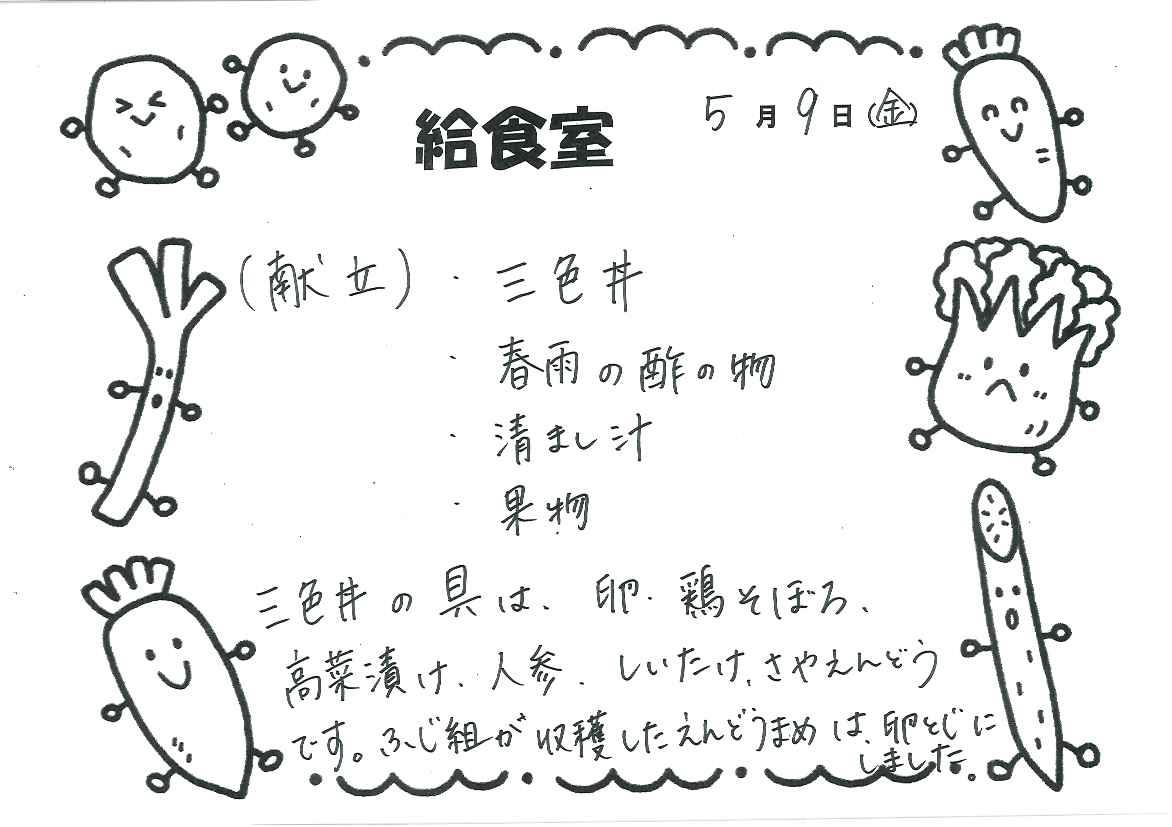 給食室 5月9日(金)
(献立)・三色丼
・春雨の酢の物
・清まし汁
・果物
三色丼の具は、卵、鶏そぼろ、
高菜漬け、人参、しいたけ、さやえんどう
です。ふじ組が収穫したえんどうまめは、卵とじに
しました。